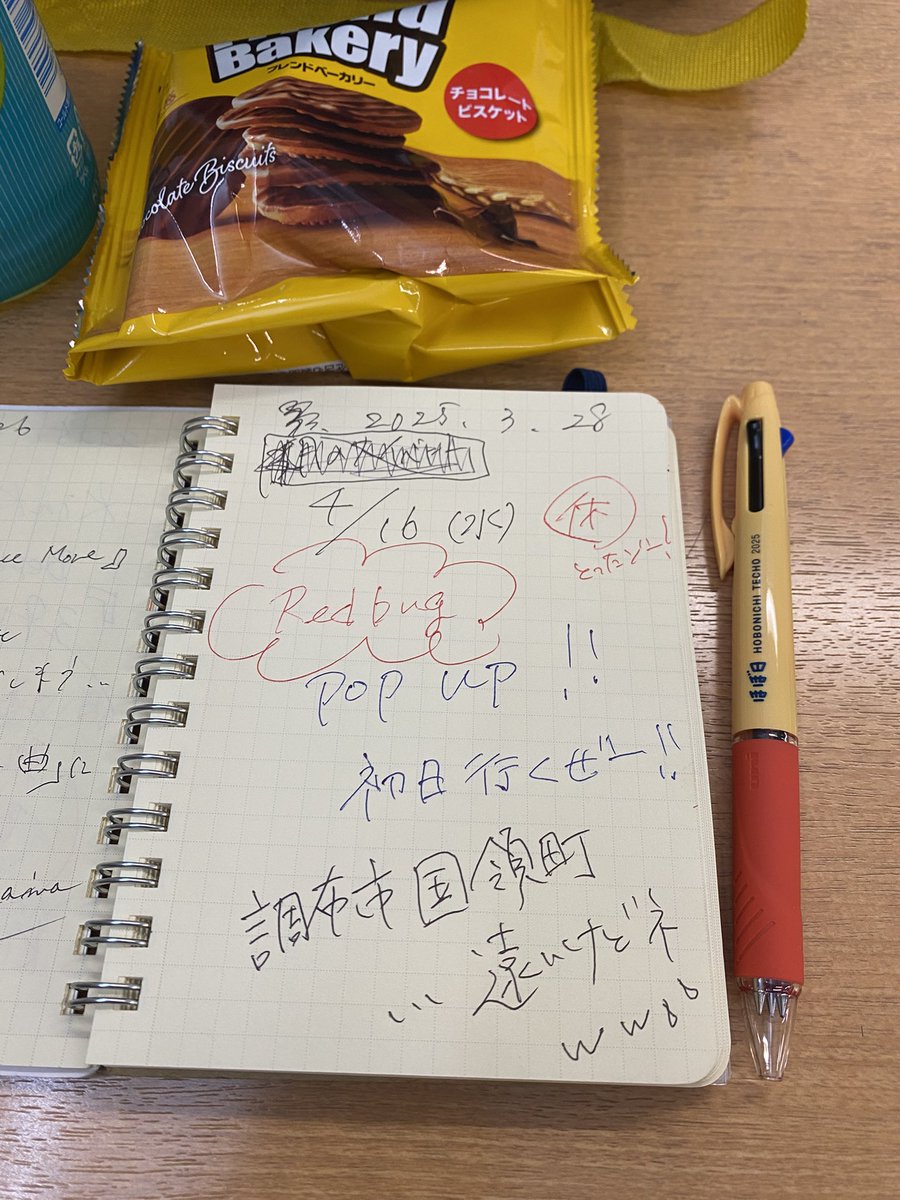 Bakery
フレンドベーカリー
チョコレート
ビスケット
Chocolate Biscuits
26
2025.3.28
4/16 (水)
休
とったゾー!
Redbug
POP UP !!
初日行くぜー!!
調布市国領町
... 遠いけどネ
ww
Move♫
ます...
曲に
ほぼ日 HOBONICHI TECHO 2025